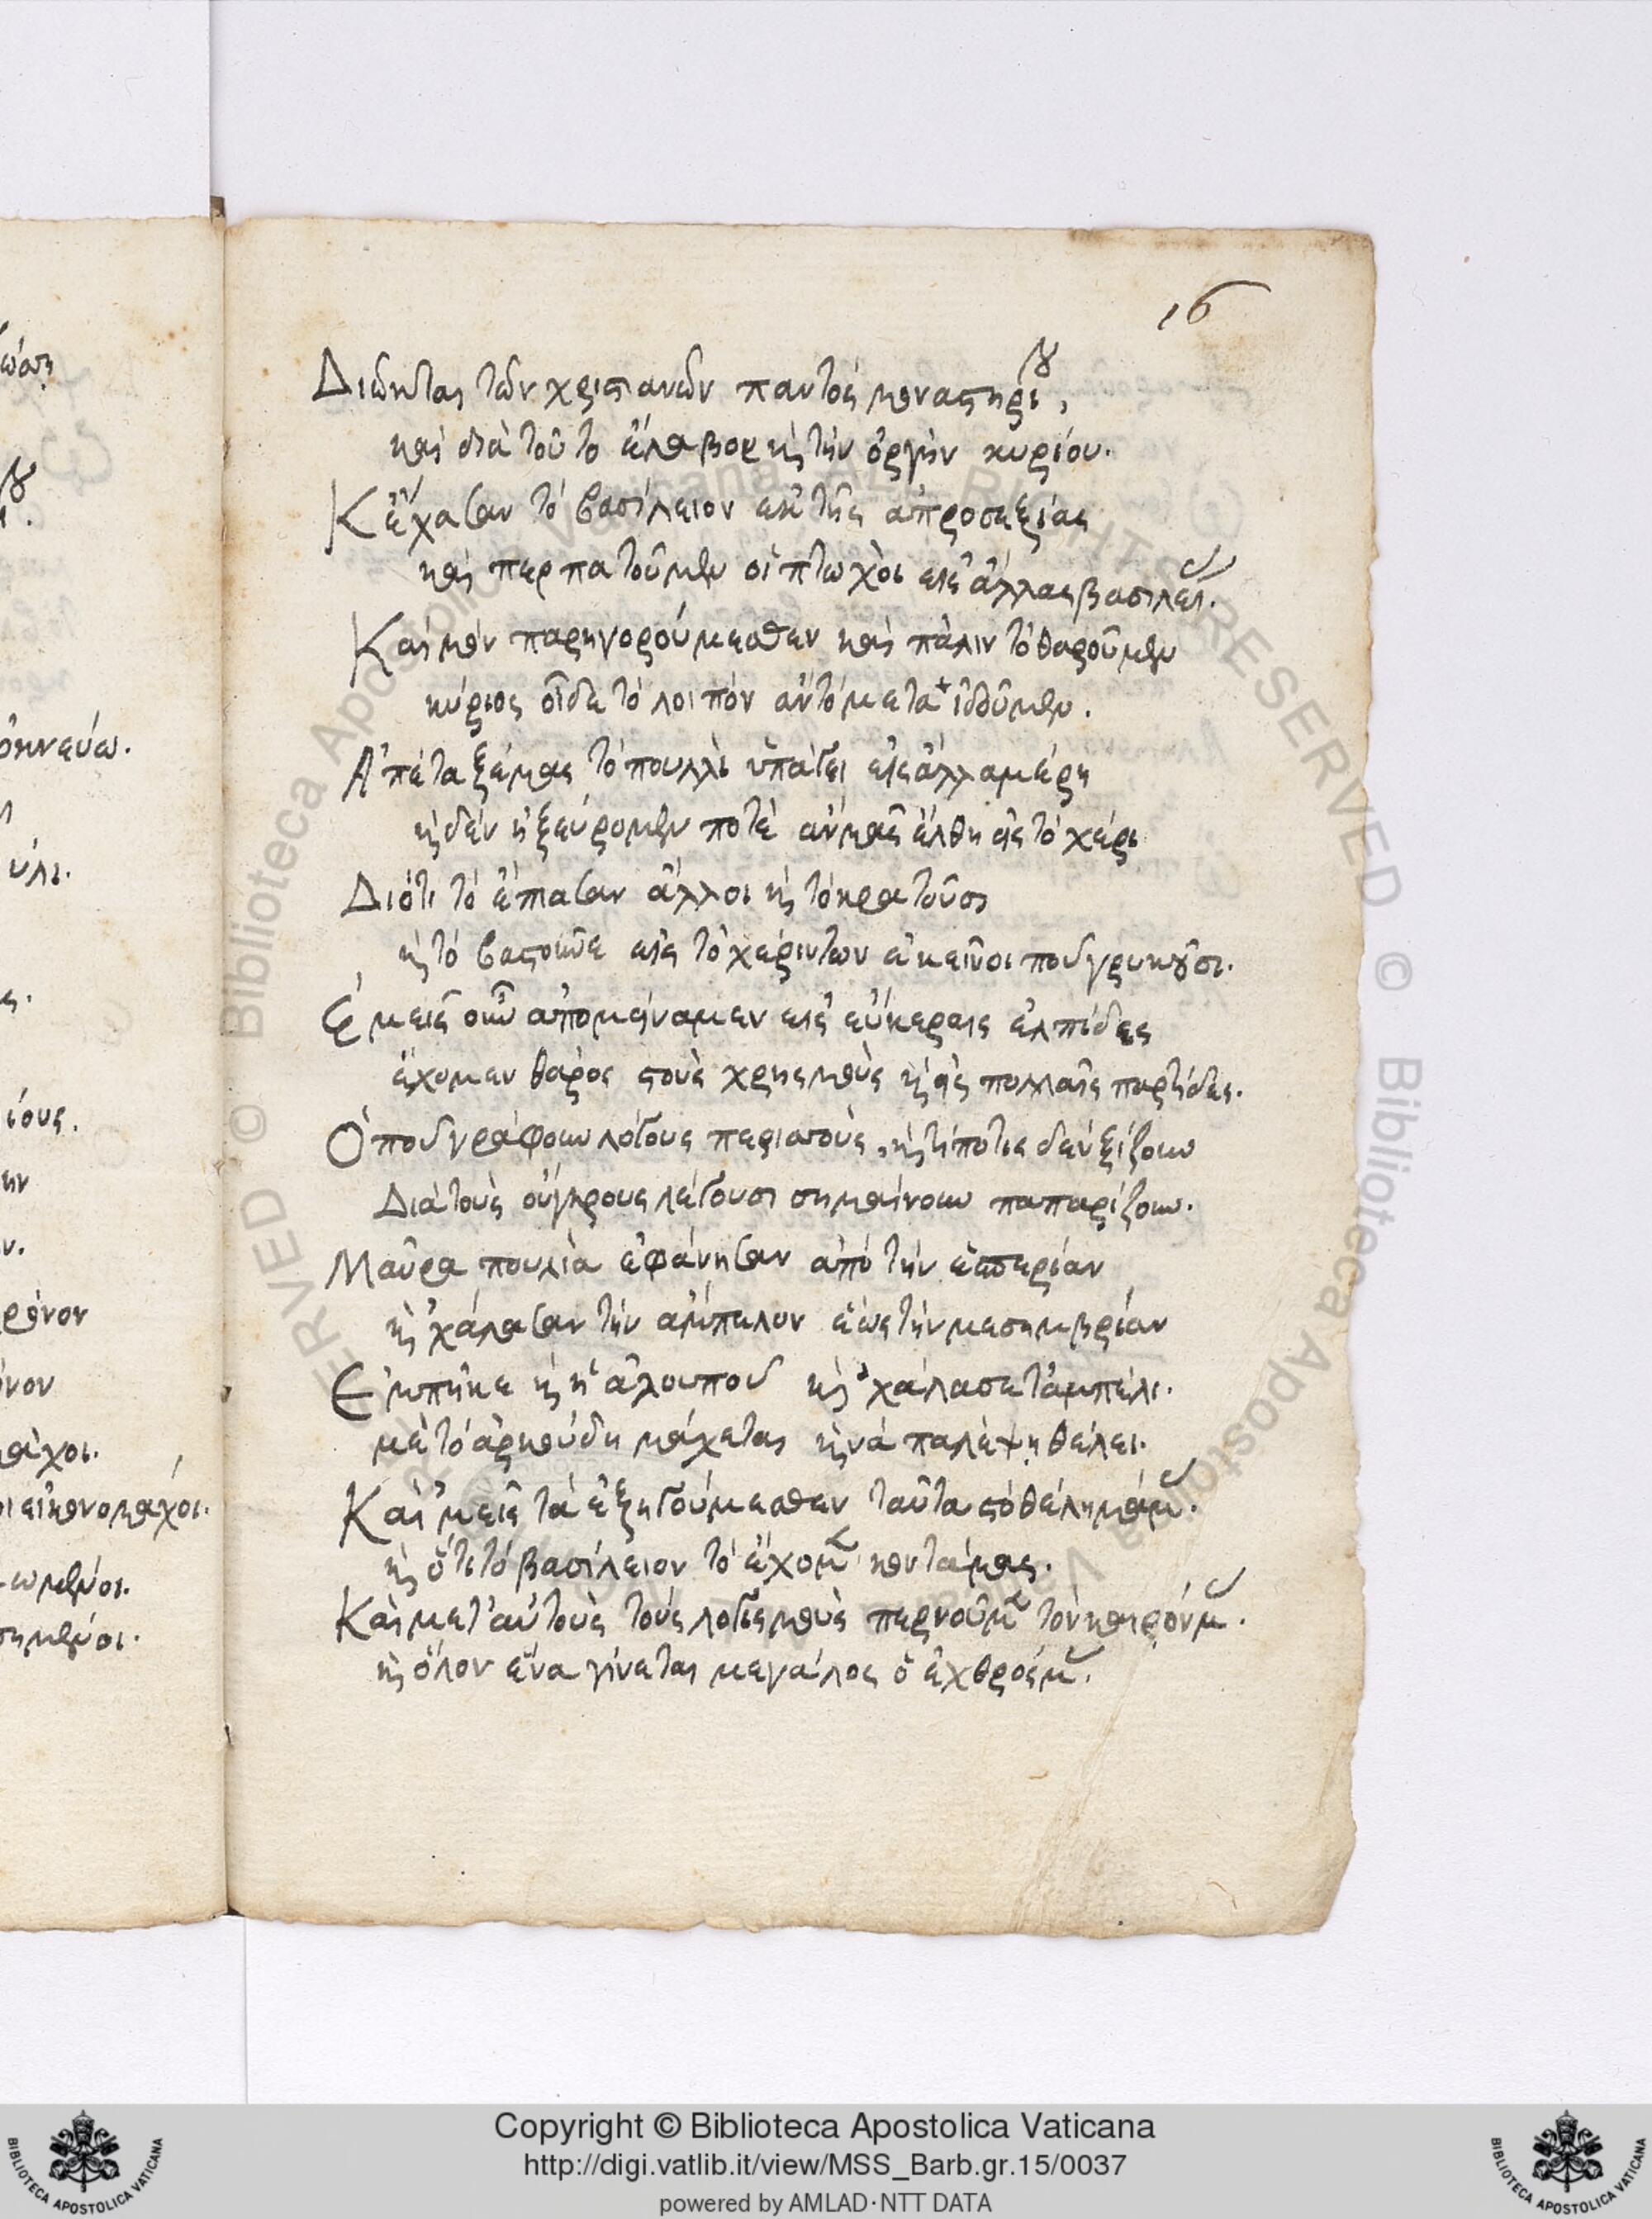 16
Διώκται τῶν χριστιανῶν παντὸς μοναστηρίου,
καὶ διὰ τοῦτο ἔλαβον κ̀ τὴν ὀργὴν κυρίου.
Κ ἔχασαν τὸ βασίλειον ἐκ τῆς ἀπροσεξίας
καὶ περπατοῦμεν οἱ πτωχοὶ εἰς ἄλλας βασιλεί.
Καὶ μὸν παρηγορούμεσθεν καὶ πάλιν τὸ θαροῦμεν
κύριος οἶδε τὸ λοιπὸν ἂν τὸ μετα ἰδδοῦμεν.
Ἀπέταξέ μας τὸ πουλλὶ ὑπάγει εἰς ἄλλα μέρη
κ̀ δὲν ἠξεύρομεν ποτὲ ἂν μᾶς ἔλθη εἰς τὸ χέρι
Διότι τὸ ἔπιασαν ἄλλοι κ̀ τὸ κρατοῦσι
κ̀ τὸ βαστοῦνε εἰς τὸ χέριντων ἐκεῖνοι ποῦ γρυκοῦσι.
Ἐμεῖς οὖν ἀπομείναμεν εἰς εὔκεραις ἐλπίδες
ἔχομεν θάρος στοὺς χρησμοὺς κ̀ σὲ πολλαῖς παρτίδες.
Ὁποῦ γράφουν λόγους περισσοὺς, κ̀ τίποτις δὲν ξίζουν
Διὰ τοὺς οὔγκρους λέγουσι σημαίνουν παπαρίζουν.
Μαῦρα πουλιὰ ἐφάνησαν ἀπὸ τὴν ἑσπερίαν
κ̀ χάλασαν τὴν ἄμπελον ἕως τὴν μεσημβρίαν
Ἐμπῆκε κ̀ ἡ ἀλουποῦ κ̀ χάλασε τ' ἀμπέλι.
μὲ τὸ ἀρκούδη μάχεται κ̀ νὰ παλέψη θέλει.
Καὶ μεῖς τὰ ἐξηγούμεσθεν ταῦτα στὸ θέλημάμ.
κ̀ ὅτι τὸ βασίλειον τὸ ἔχομ κοντάμας.
Καὶ μετ' αὐτοὺς τοὺς λογισμοὺς περνοῦμ τὸν καιρόνμ.
κ̀ ὅλον ἕνα γίνεται μεγάλος ὁ ἐχθρόςμ.
Copyright © Biblioteca Apostolica Vaticana
http://digi.vatlib.it/view/MSS_Barb.gr.15/0037
powered by AMLAD·NTT DATA